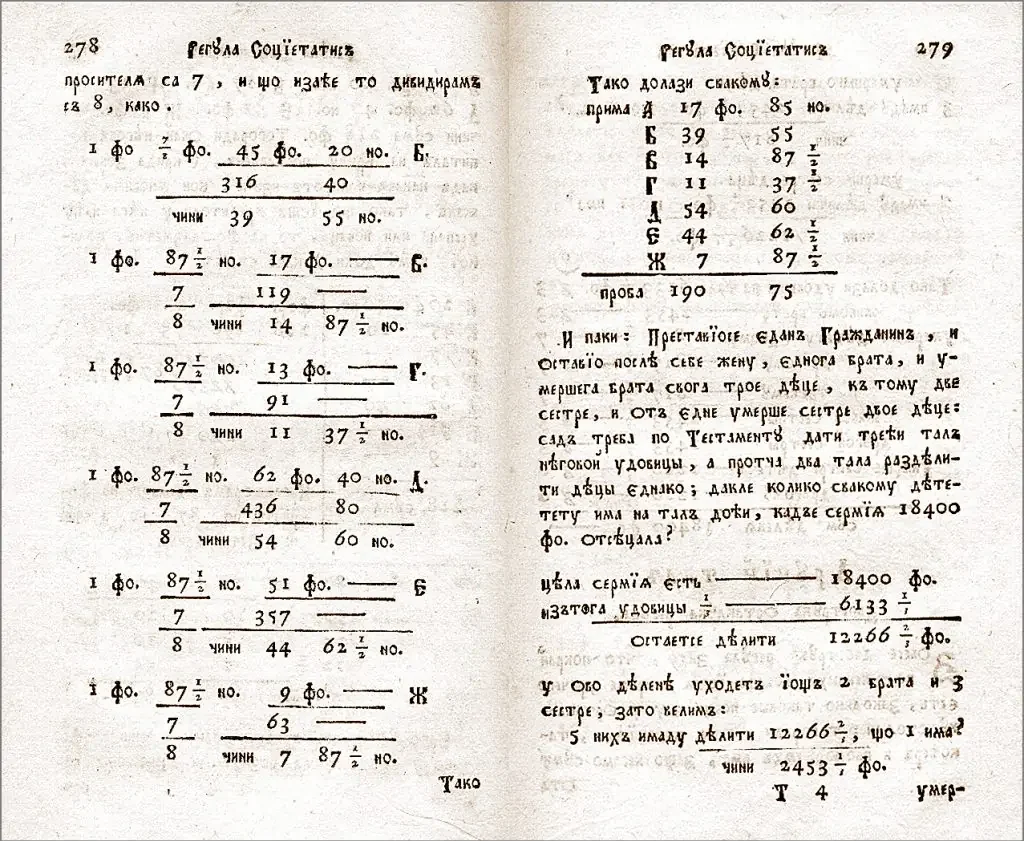 278 Регула Социетатисъ
просителя са 7 , и що изађе то дивидирамъ
съ 8 , како .
1 фо 7/8 фо. 45 фо. 20 но. Б.
316 40
чини 39 55 но.
1 фо. 87 1/2 но. 17 фо. —— В.
7 119 ——
8 чини 14 87 1/2 но.
1 фо. 87 1/2 но. 13 фо. —— Г.
7 91 ——
8 чини 11 37 1/2 но.
1 фо. 87 1/2 но. 62 фо. 40 но. Д.
7 436 80
8 чини 54 60 но.
1 фо. 87 1/2 но. 51 фо. —— Є
7 357 ——
8 чини 44 62 1/2 но.
1 фо. 87 1/2 но. 9 фо. —— Ж
7 63 ——
8 чини 7 87 1/2 но.
Тако
Регула Соцїетатисъ 279
Тако долази свакомȣ:
прима А 17 фо. 85 но.
Б 39 55
В 14 87 1/2
Г 11 37 1/2
Д 54 60
Є 44 62 1/2
Ж 7 87 1/2
проба 190 75
И паки : Преставїосе єданъ Гражданинъ , и
оставїо послѣ себе жену , єднога брата , и у-
мершега брата свога троє дѣце , къ тому две
сестре , и отъ єдне умерше сестре двоє дѣце:
садъ треба по Тестаментȣ дати трећи талъ
нѣговой удовицы , а протча два тала раздѣли-
ти дѣцы єднако ; дакле колико свакому дѣте-
тету има на талъ доћи , кадъе сермїя 18400
фо. отсѣцала?
цѣла сермїя єсть —— 18400 фо.
изътога удовицы 1/3 —— 6133 1/3
остаетсе дѣлити 12266 2/3 фо.
у ово дѣленѣ уходетъ їощъ 2 брата и 3
сестре , зато велимъ :
5. нихъ имаду дѣлити 12266 2/3 , що 1 има?
чини 2453 1/3 фо.
Т 4 умер-